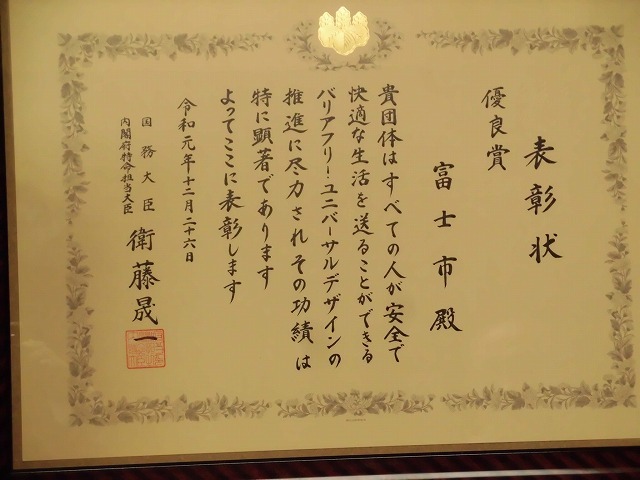 表彰状
優良賞
富士市殿
貴団体はすべての人が安全で
快適な生活を送ることができる
バリアフリー・ユニバーサルデザインの
推進に尽力されその功績は
特に顕著であります
よってここに表彰します
令和元年十二月二十六日
国務大臣
内閣府特命担当大臣
衛藤晟一